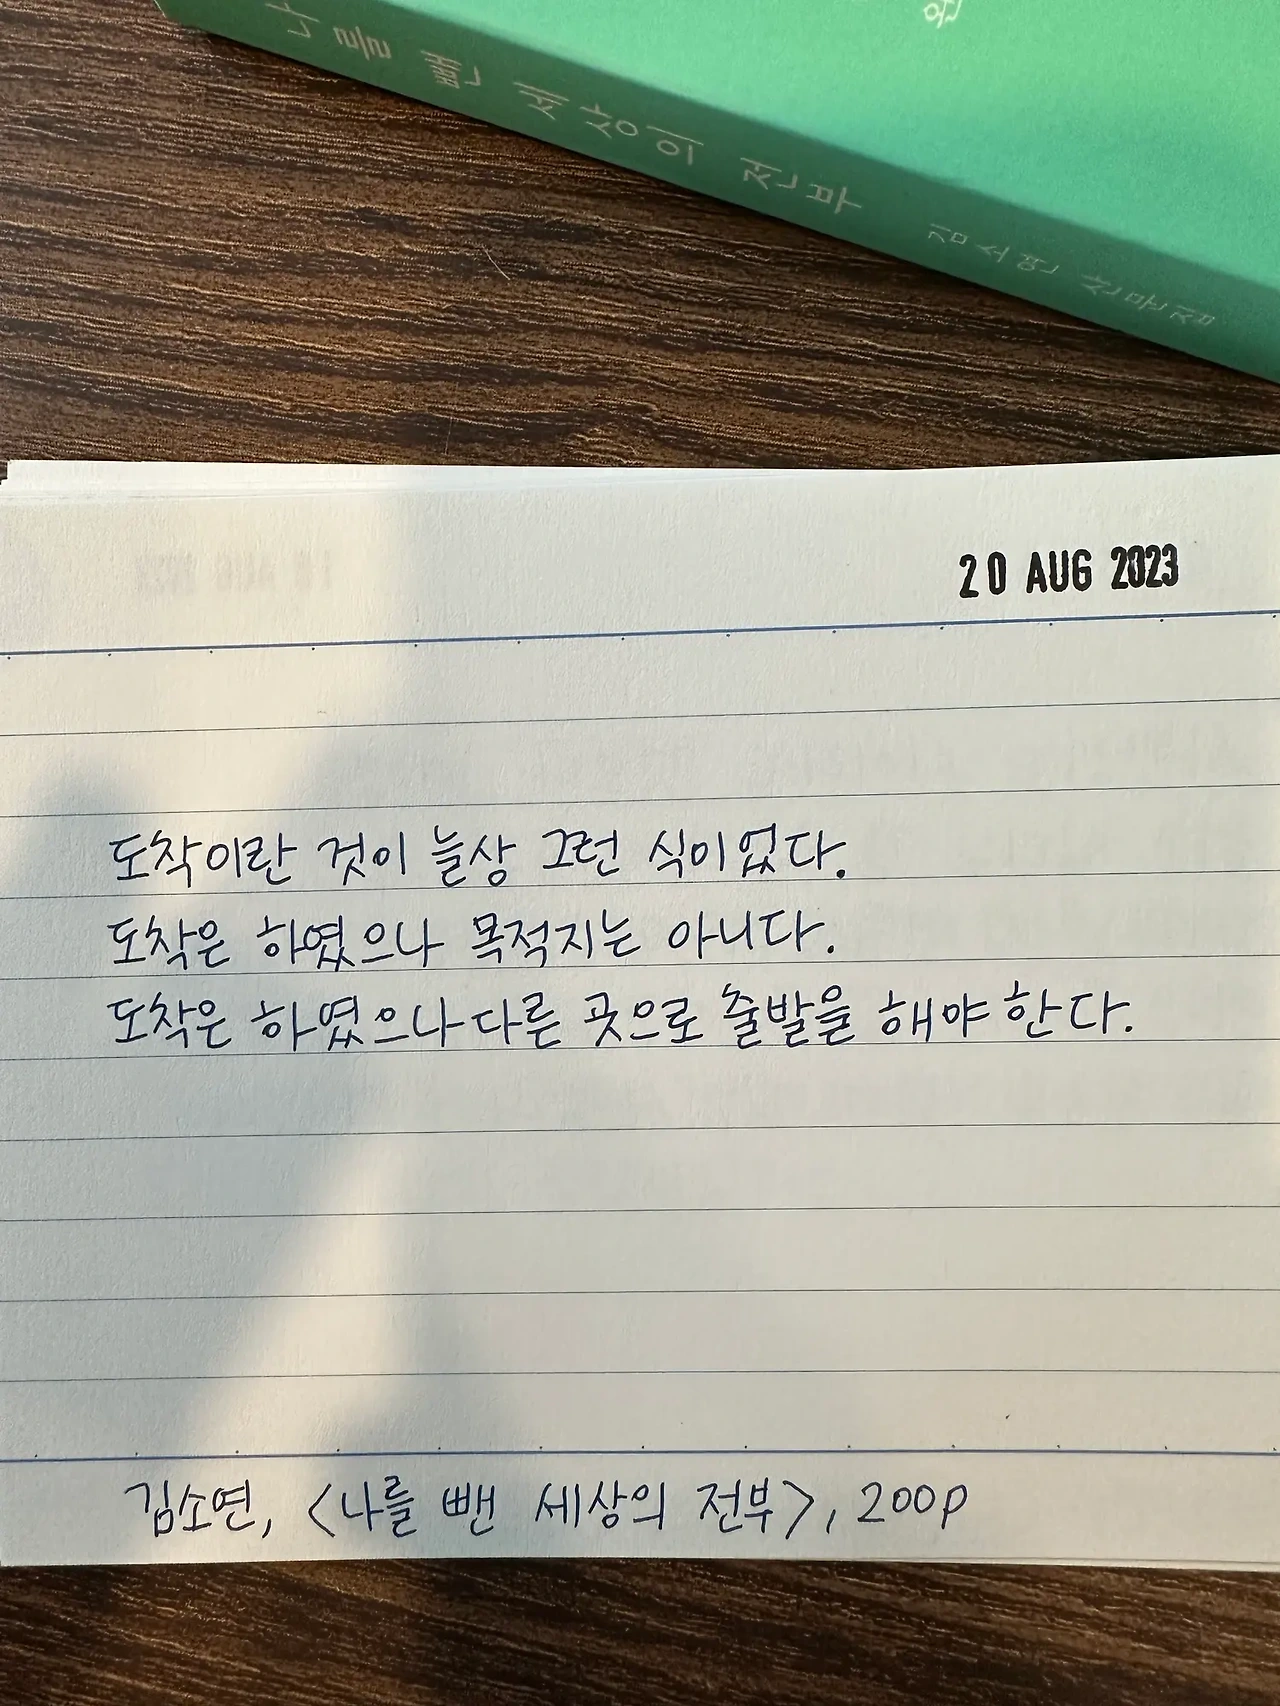 나를 뺀 세상의 전부 김소연 산문집
20 AUG 2023
도착이란 것이 늘상 그런 식이었다.
도착은 하였으나 목적지는 아니다.
도착은 하였으나 다른 곳으로 출발을 해야 한다.
김소연, <나를 뺀 세상의 전부>, 200p